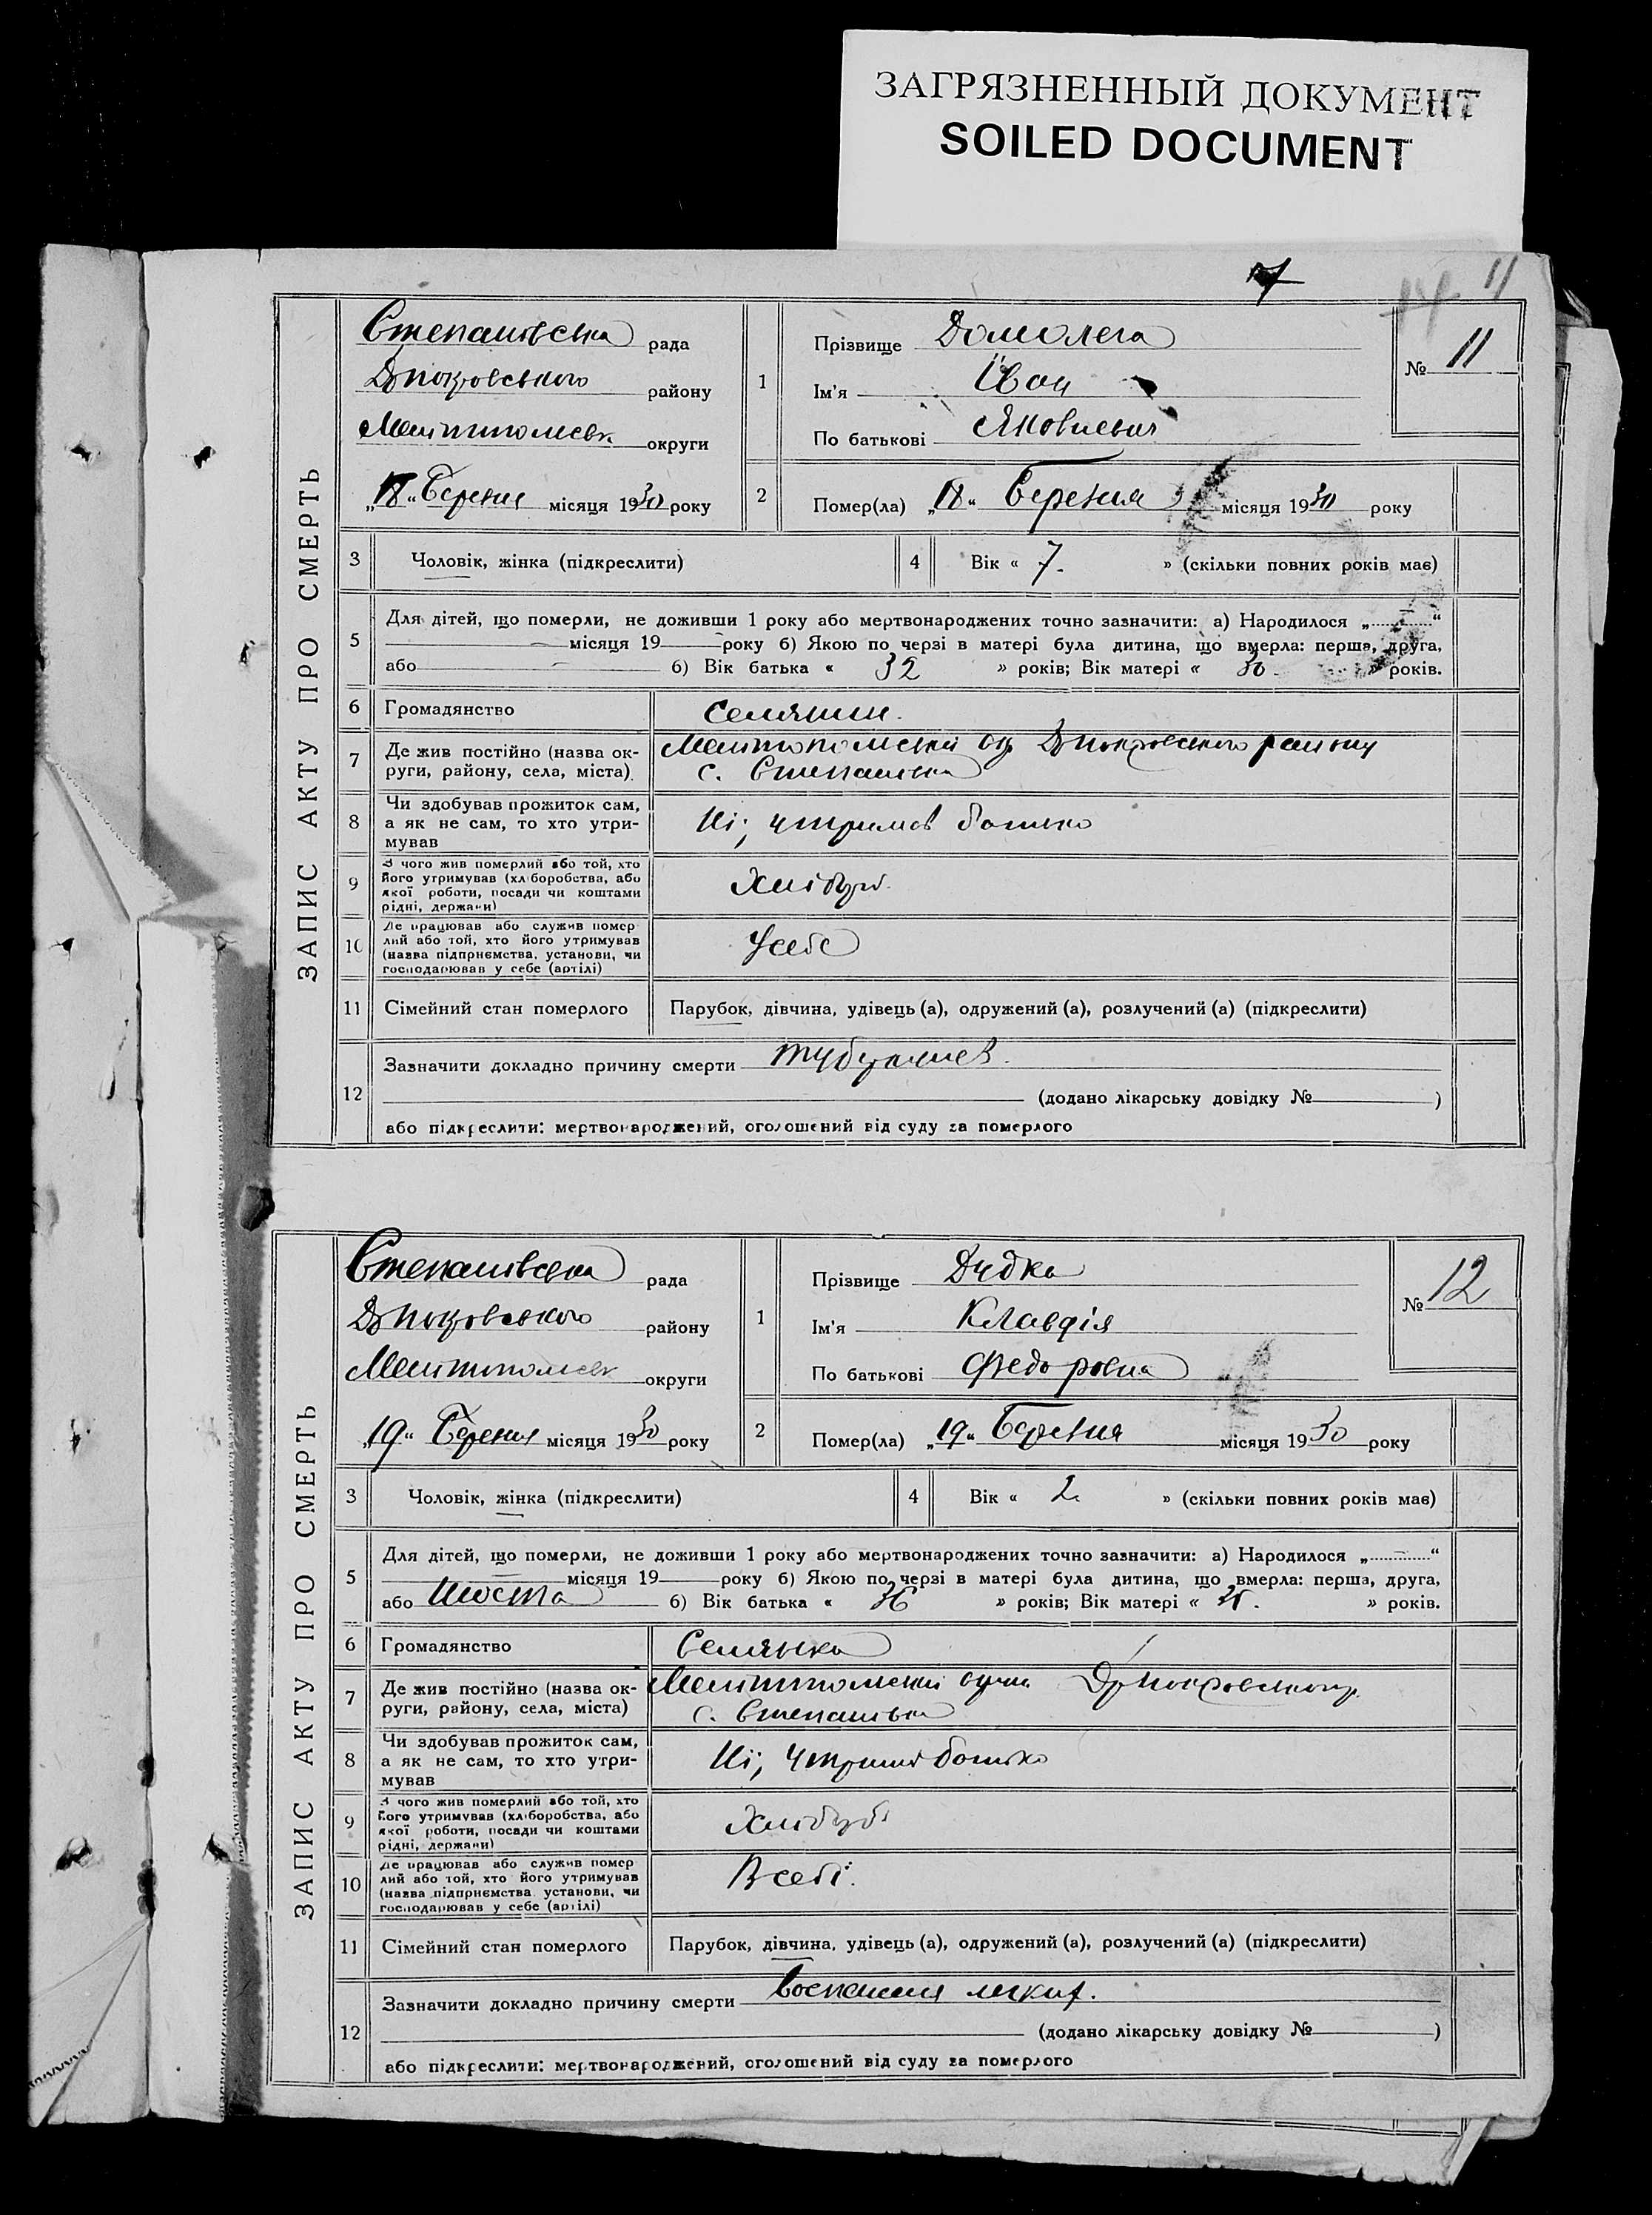 ЗАГРЯЗНЕННЫЙ ДОКУМЕНТ
SOILED DOCUMENT
11
ЗАПИС АКТУ ПРО СМЕРТЬ
Степанівська рада
району
округи
„18“ Березня місяця 1930 року
1
Прізвище Домолега
Ім'я Іван
По батькові Яковлевич
№ 11
2
Помер(ла) „18“ Березня місяця 1930 року
3 Чоловік, жінка (підкреслити)
4 Вік « 7. » (скільки повних років має)
5
Для дітей, що померли, не доживши 1 року або мертвонароджених точно зазначити: а) Народилося „ “
місяця 19 року б) Якою по черзі в матері була дитина, що вмерла: перша, друга,
або б) Вік батька « 32 » років; Вік матері « 30. » років.
6 Громадянство селянин.
7 Де жив постійно (назва ок-
руги, району, села, міста).
району
с. Степанівка
8 Чи здобував прожиток сам,
а як не сам, то хто утри-
мував
Ні; утримав батько
9 З чого жив померлий або той, хто
його утримував (хліборобства, або
якої роботи, посади чи коштами
рідні, держави)
Хлібороб.
10 Де працював або служив помер
лий або той, хто його утримував
(назва підприємства, установи, чи
господарював у себе (артілі)
Усебе
11 Сімейний стан померлого Парубок, дівчина, удівець (а), одружений (а), розлучений (а) (підкреслити)
12
Зазначити докладно причину смерти
(додано лікарську довідку № )
або підкреслити: мертвонароджений, оголошений від суду за померлого
ЗАПИС АКТУ ПРО СМЕРТЬ
Степанівська рада
району
округи
„19“ Березня місяця 1930 року
1
Прізвище Дудка
Ім'я Клавдія
По батькові Федоровна
№ 12
2
Помер(ла) „19“ Березня місяця 1930 року
3 Чоловік, жінка (підкреслити)
4 Вік « 2 » (скільки повних років має)
5
Для дітей, що померли, не доживши 1 року або мертвонароджених точно зазначити: а) Народилося „ “
місяця 19 року б) Якою по черзі в матері була дитина, що вмерла: перша, друга,
або шоста б) Вік батька « 36 » років; Вік матері « » років.
6 Громадянство Селянка
7 Де жив постійно (назва ок-
руги, району, села, міста)
с. Степанівка
8 Чи здобував прожиток сам,
а як не сам, то хто утри-
мував
Ні; утримав батько
9 З чого жив померлий або той, хто
його утримував (хліборобства, або
якої роботи, посади чи коштами
рідні, держави)
Хлібороб
10 Де працював або служив помер
лий або той, хто його утримував
(назва підприємства, установи, чи
господарював у себе (артілі)
В себі.
11 Сімейний стан померлого Парубок, дівчина, удівець (а), одружений (а), розлучений (а) (підкреслити)
12
Зазначити докладно причину смерти Воспаленя легких.
(додано лікарську довідку № )
або підкреслити: мертвонароджений, оголошений від суду за померлого